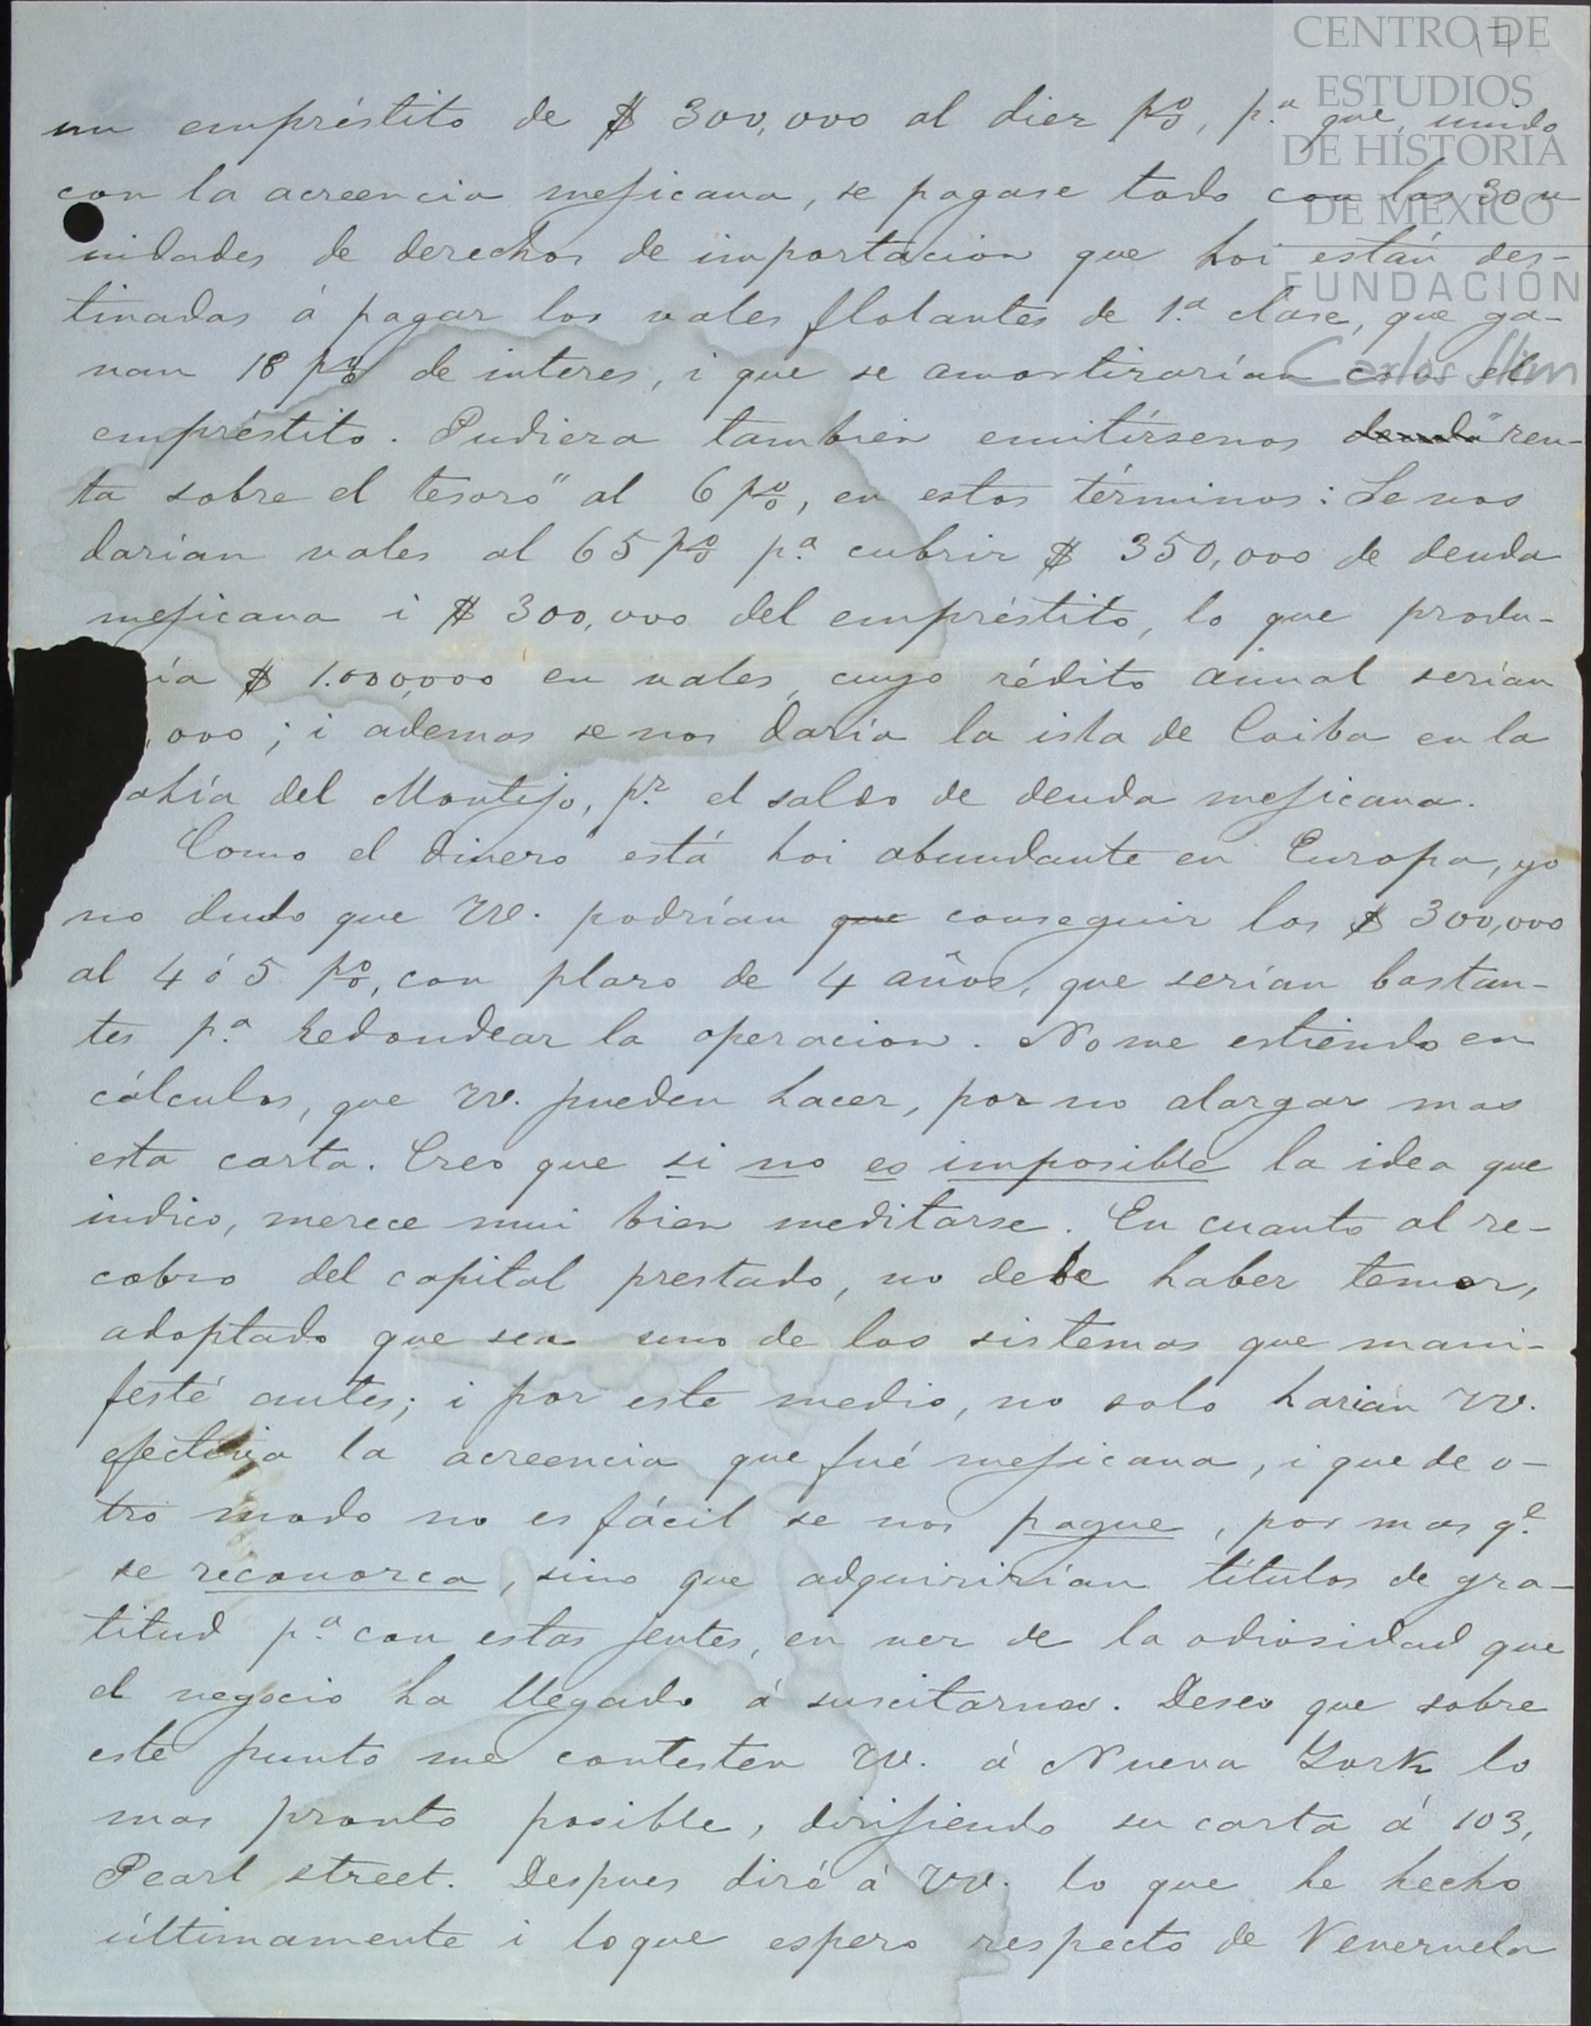 CENTRO DE
ESTUDIOS
DE HISTORIA
DE MÉXICO
FUNDACIÓN
Carlos Slim
17
un empréstito de $ 300,000 al diez p%, p.ª que, unido
con la acreencia mejicana, se pagase todo con las 30 u
nidades de derechos de importacion que hoi están des-
tinadas á pagar los vales flotantes de 1.ª clase, que ga-
nan 18 p% de interes, i que se amortizarían con el
empréstito. Pudiera tambien emitírsenos "ren-
ta sobre el tesoro" al 6 p%, en estos términos: Se nos
darían vales al 65 p% p.ª cubrir $ 350,000 de deuda
mejicana i $ 300,000 del empréstito, lo que produ-
ía $ 1.000,000 en vales, cuyo rédito anual serían
,000; i ademas se nos daría la isla de Coiba en la
ahía del Montijo, p.r el saldo de deuda mejicana.
Como el dinero está hoi abundante en Europa, yo
no dudo que VV. podrían que conseguir los $ 300,000
al 4 ó 5 p%, con plazo de 4 años, que serían bastan-
tes p.ª redondear la operacion. No me estiendo en
cálculos, que VV. pueden hacer, por no alargar mas
esta carta. Creo que si no es imposible la idea que
indico, merece mui bien meditarse. En cuanto al re-
cobro del capital prestado, no debe haber temor,
adoptado que sea uno de los sistemas que mani-
festé antes; i por este medio, no solo harían VV.
efectiva la acreencia que fué mejicana, i que de o-
tro modo no es fácil se nos pague, por mas q.e
se reconozca, sino que adquiririan títulos de gra-
titud p.ª con estas jentes, en vez de la odiosidad que
el negocio ha llegado á suscitarnos. Deseo que sobre
este punto me contesten VV. á Nueva York lo
mas pronto posible, dirijiendo su carta á 103,
Pearl street. Despues diré á VV. lo que he hecho
últimamente i lo que espero respecto de Venezuela